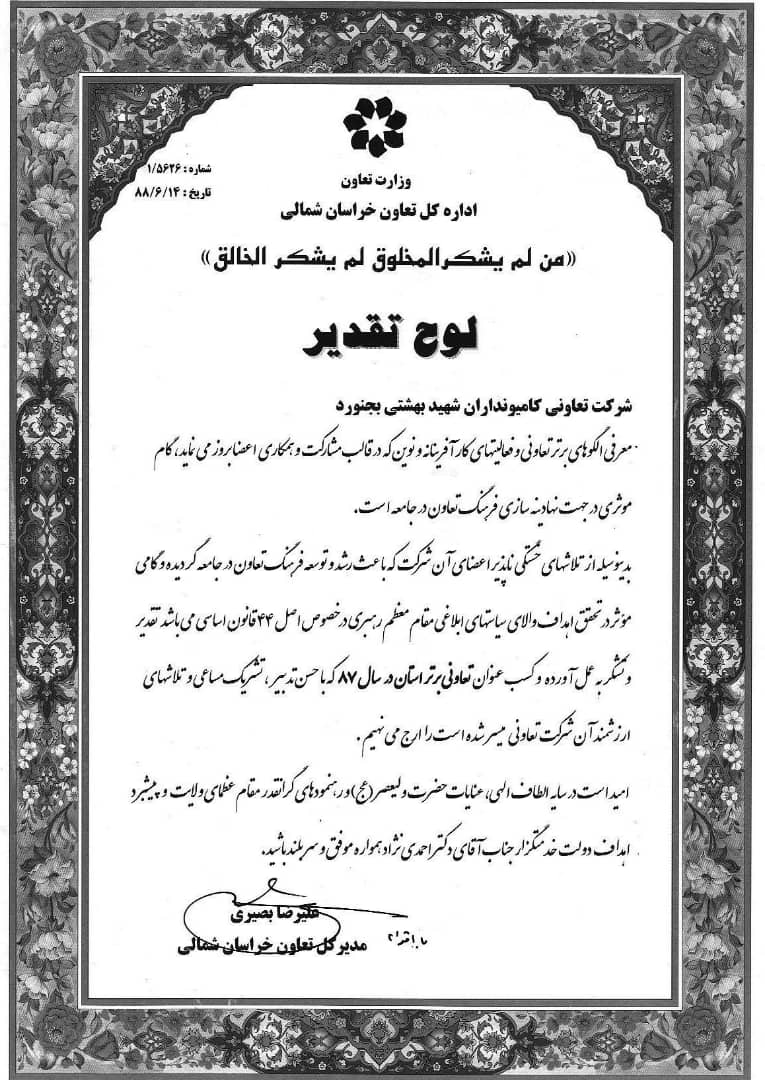 شماره : ۱/۵۶۲۶
تاریخ : ۸۸/۶/۱۴
وزارت تعاون
اداره کل تعاون خراسان شمالی
((من لم یشکرالمخلوق لم یشکر الخالق))
لوح تقدیر
شرکت تعاونی کامیونداران شهید بهشتی بجنورد
معرفی الگوهای برتر تعاونی و فعالیتهای کارآفرینانه و نوین که در قالب مشارکت و همکاری اعضا بروز می نماید، گام
موثری در جهت نهادینه سازی فرهنگ تعاون در جامعه است.
بدینوسیله از تلاشهای خستگی ناپذیر اعضای آن شرکت که باعث رشد و توسعه فرهنگ تعاون در جامعه گردیده و گامی
مؤثر در تحقق اهداف والای سیاستهای ابلاغی مقام معظم رهبری در خصوص اصل ۴۴ قانون اساسی می باشد تقدیر
و تشکر به عمل آورده و کسب عنوان تعاونی برتر استان در سال ۸۷ که با حسن تدبیر ، تشریک مساعی و تلاشهای
ارزشمند آن شرکت تعاونی میسر شده است را ارج می نهیم .
امید است در سایه الطاف الهی، عنایات حضرت ولیعصر (عج) و رهنمودهای گرانقدر مقام عظمای ولایت و پیشبرد
اهداف دولت خدمتگزار جناب آقای دکتر احمدی نژاد همواره موفق و سربلند باشید.
علیرضا بصیری
مدیر کل تعاون خراسان شمالی